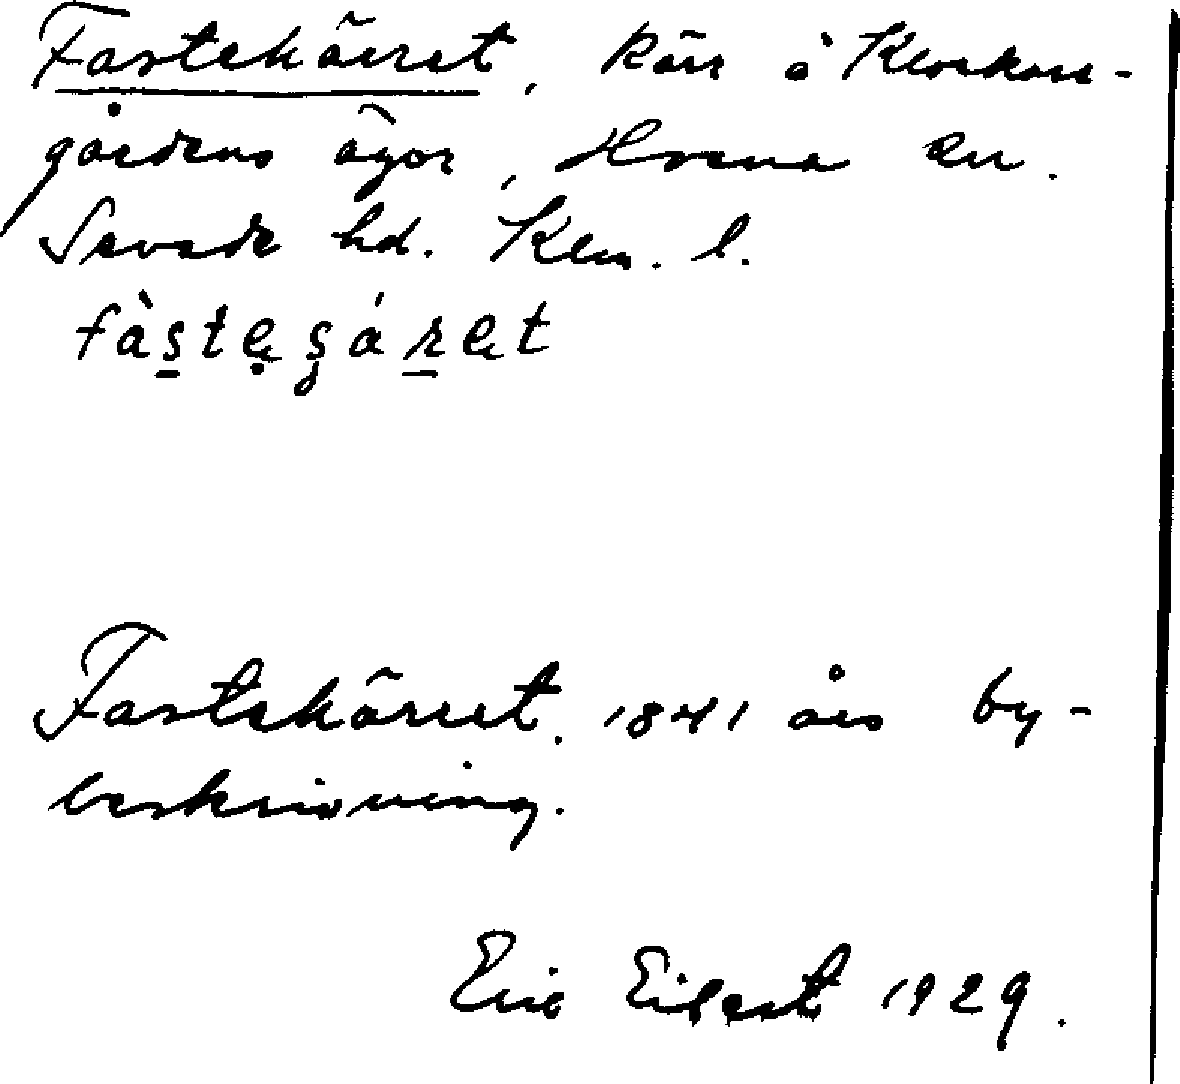 Fastekärret, kärr å Klockare-
gårdens ägor, Hvena sn.
Sevede hd. Klm. l.
Fastekärret. 1841 års by-
beskrivning.
Eric Eilert 1929.